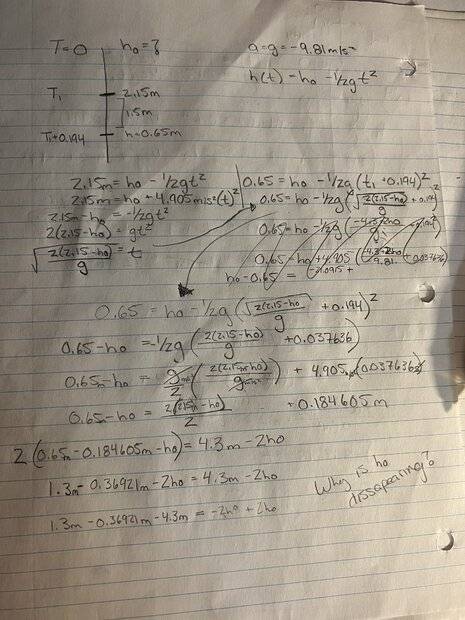 T=0 h₀=? a=g=-9.81m/s²
h(t) = h₀ - ½gt²
T₁ 2.15m
1.5m
T₁+0.194 h=0.65m
2.15m = h₀ - ½gt² 0.65 = h₀ - ½g(t₁+0.194)²
2.15m = h₀ + 4.905m/s²(t)² 0.65 = h₀ - ½g(√(2(2.15-h₀)/g) + 0.194)²
2.15m - h₀ = -½gt² 0.65 = h₀ - ½g
2(2.15-h₀) = gt² 0.65 = h₀ + 4.905
√(2(2.15-h₀)/g) = t h₀ - 0.65 =
0.65 = h₀ - ½g(√(2(2.15-h₀)/g) + 0.194)²
0.65 - h₀ = -½g(2(2.15-h₀)/g + 0.037636)
0.65m - h₀ = g/2(2(2.15m-h₀)/g) + 4.905(0.037636)
0.65m - h₀ = 2(2.15m-h₀)/2 + 0.184605m
2(0.65m - 0.184605m - h₀) = 4.3m - 2h₀
1.3m - 0.36921m - 2h₀ = 4.3m - 2h₀
1.3m - 0.36921m - 4.3m = -2h₀ + 2h₀
Why is h₀
dissapearing?